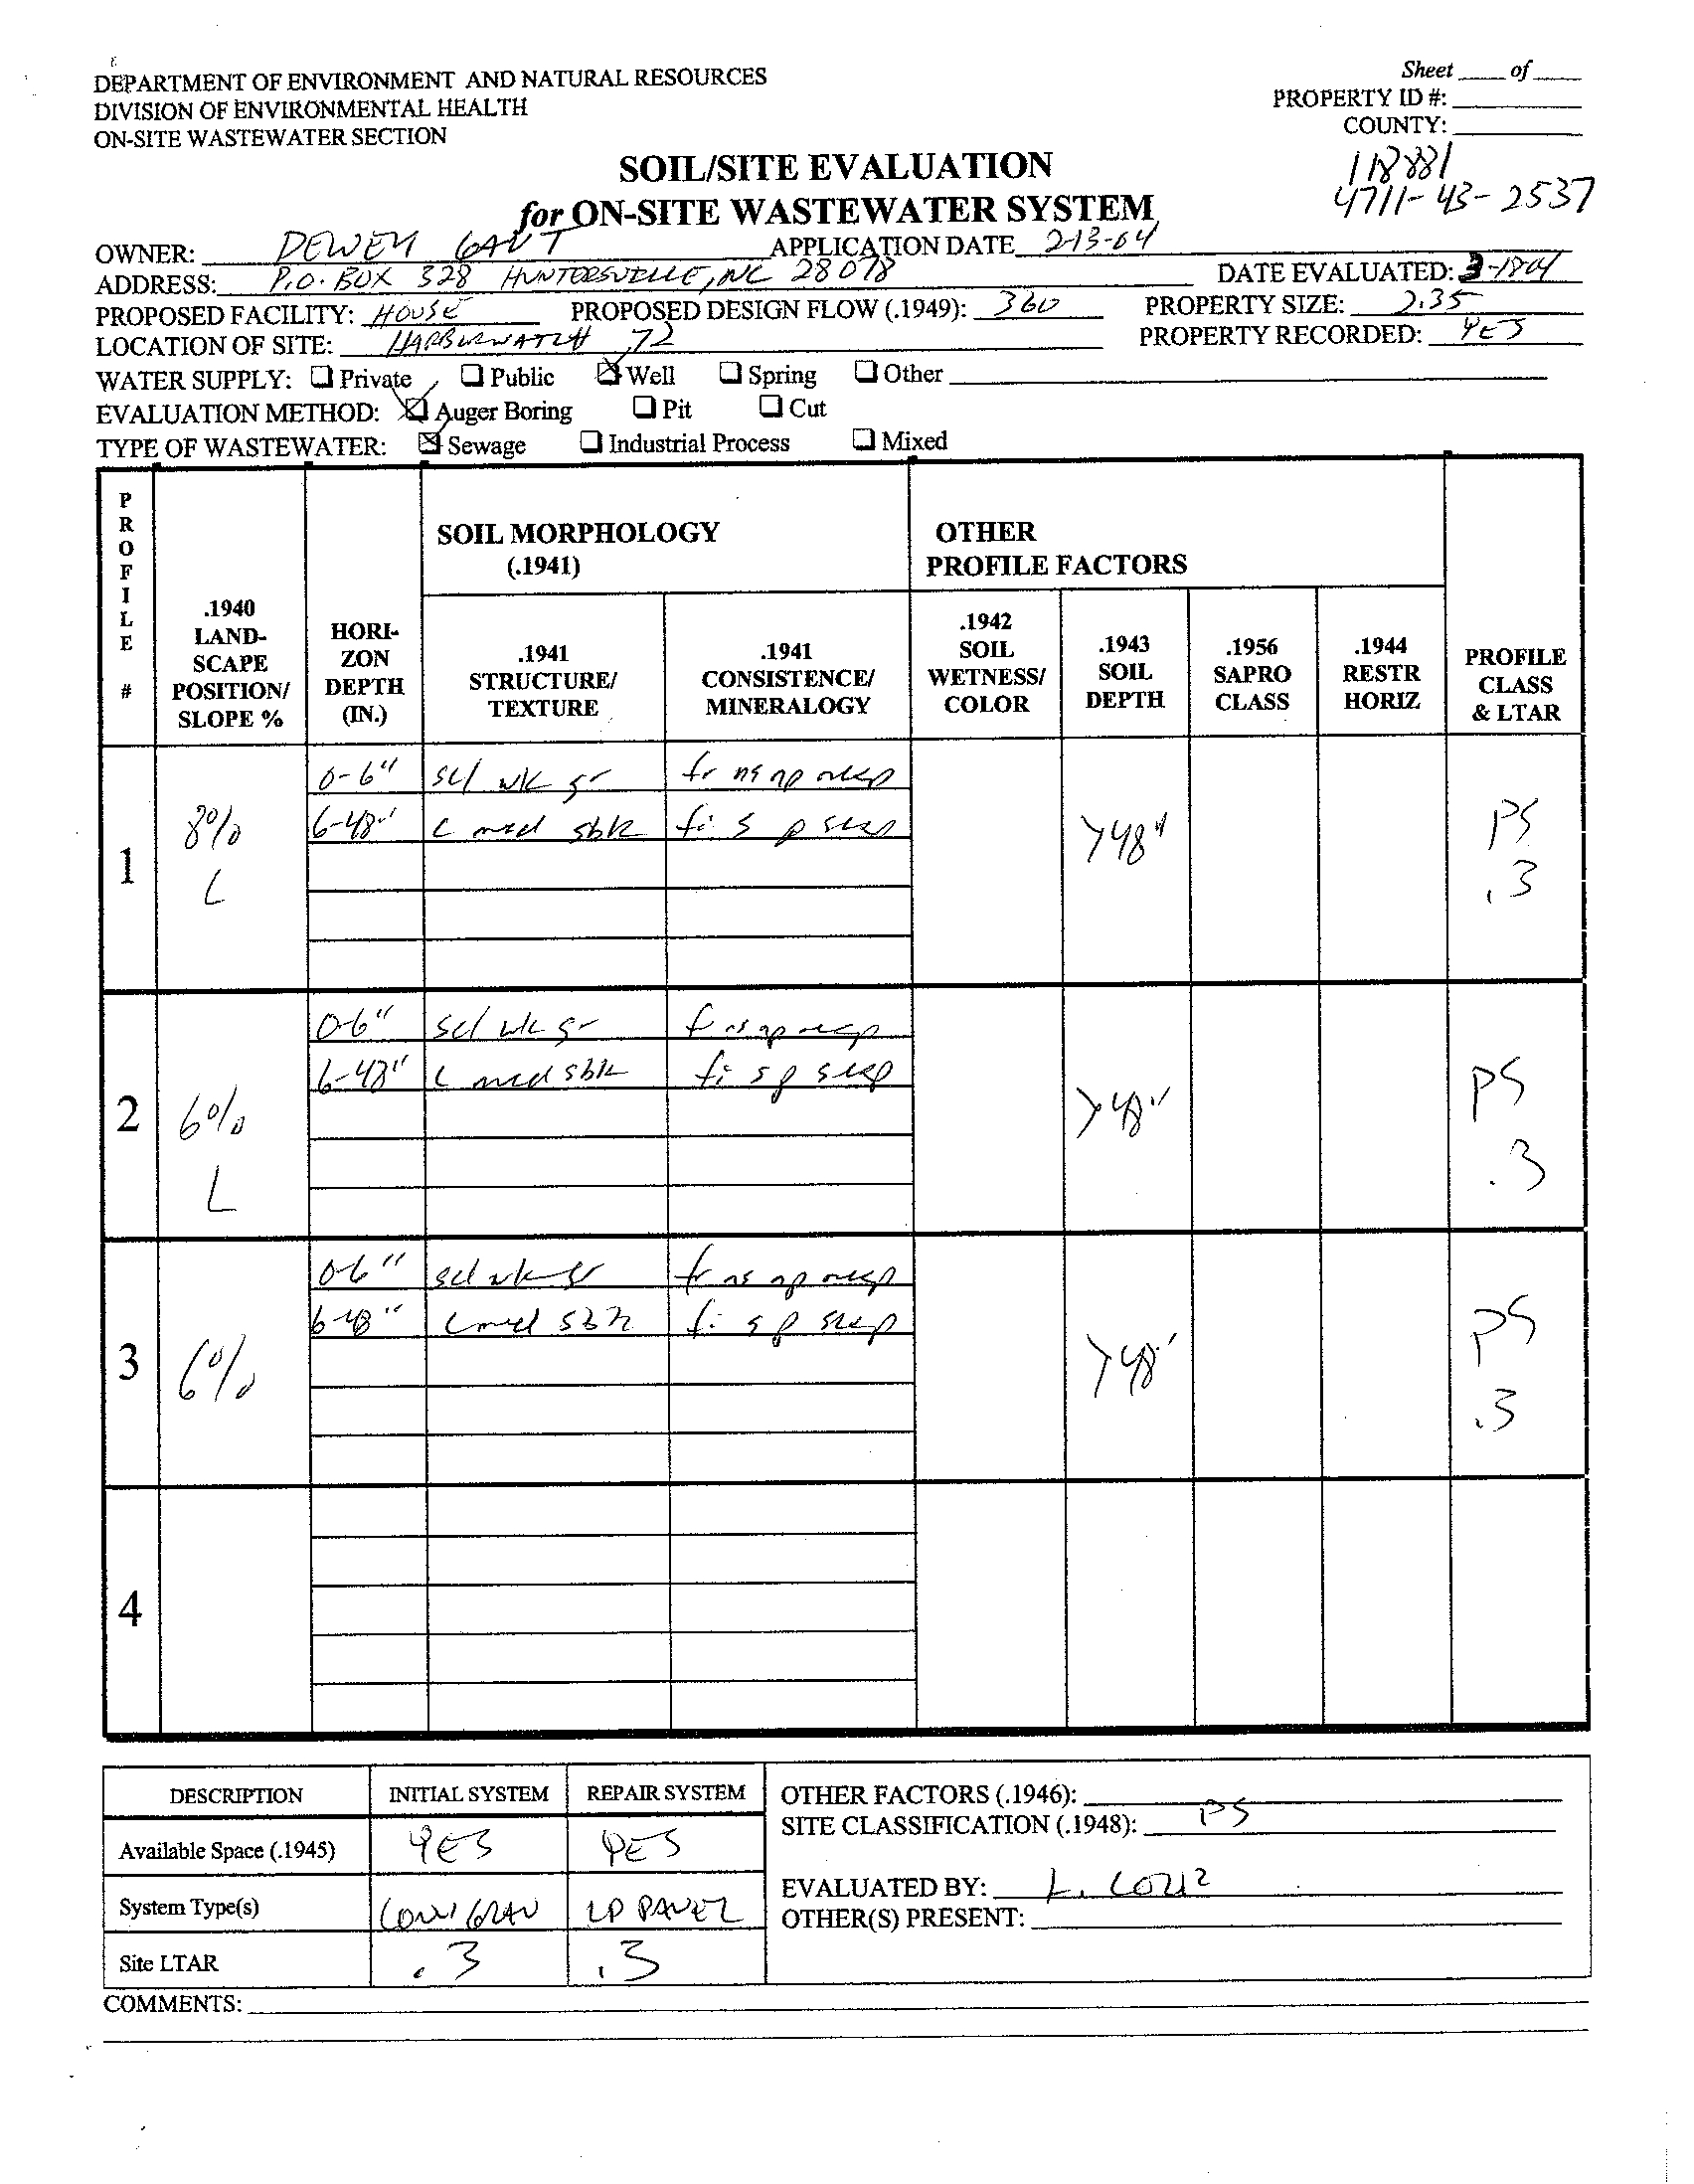 DEPARTMENT OF ENVIRONMENT AND NATURAL RESOURCES
DIVISION OF ENVIRONMENTAL HEALTH
ON-SITE WASTEWATER SECTION
Sheet ____ of ____
PROPERTY ID #:
COUNTY:
118881
4711-43-2537
SOIL/SITE EVALUATION
for ON-SITE WASTEWATER SYSTEM
OWNER: DEWEY GANT APPLICATION DATE 2-13-04
ADDRESS: P.O. BOX 328 HUNTERSVILLE, NC 28078 DATE EVALUATED: 3-1804
PROPOSED FACILITY: HOUSE PROPOSED DESIGN FLOW (.1949): 360 PROPERTY SIZE: 2.35
LOCATION OF SITE: HARBURWATCH 72 PROPERTY RECORDED: YES
WATER SUPPLY: Private Public Well Spring Other
EVALUATION METHOD: Auger Boring Pit Cut
TYPE OF WASTEWATER: Sewage Industrial Process Mixed
PROFILE #
.1940 LAND-SCAPE POSITION/ SLOPE %
HORI-ZON DEPTH (IN.)
SOIL MORPHOLOGY (.1941)
.1941 STRUCTURE/ TEXTURE
.1941 CONSISTENCE/ MINERALOGY
OTHER PROFILE FACTORS
.1942 SOIL WETNESS/ COLOR
.1943 SOIL DEPTH
.1956 SAPRO CLASS
.1944 RESTR HORIZ
PROFILE CLASS & LTAR
1
8%
L
0-6" scl wk gr fr ns np nexp
6-48" c med sbk fi s p sexp
>48"
PS
.3
2
6%
L
0-6" scl wk gr fr ns np nexp
6-48" c med sbk fi s p sexp
>48"
PS
.3
3
6%
0-6" scl wk gr fr ns np nexp
6-48" c med sbk fi s p sexp
>48"
PS
.3
4
DESCRIPTION INITIAL SYSTEM REPAIR SYSTEM
Available Space (.1945) YES YES
System Type(s) CONV GRAV LP PANEL
Site LTAR .3 .3
OTHER FACTORS (.1946):
SITE CLASSIFICATION (.1948): PS
EVALUATED BY: L.
OTHER(S) PRESENT:
COMMENTS: